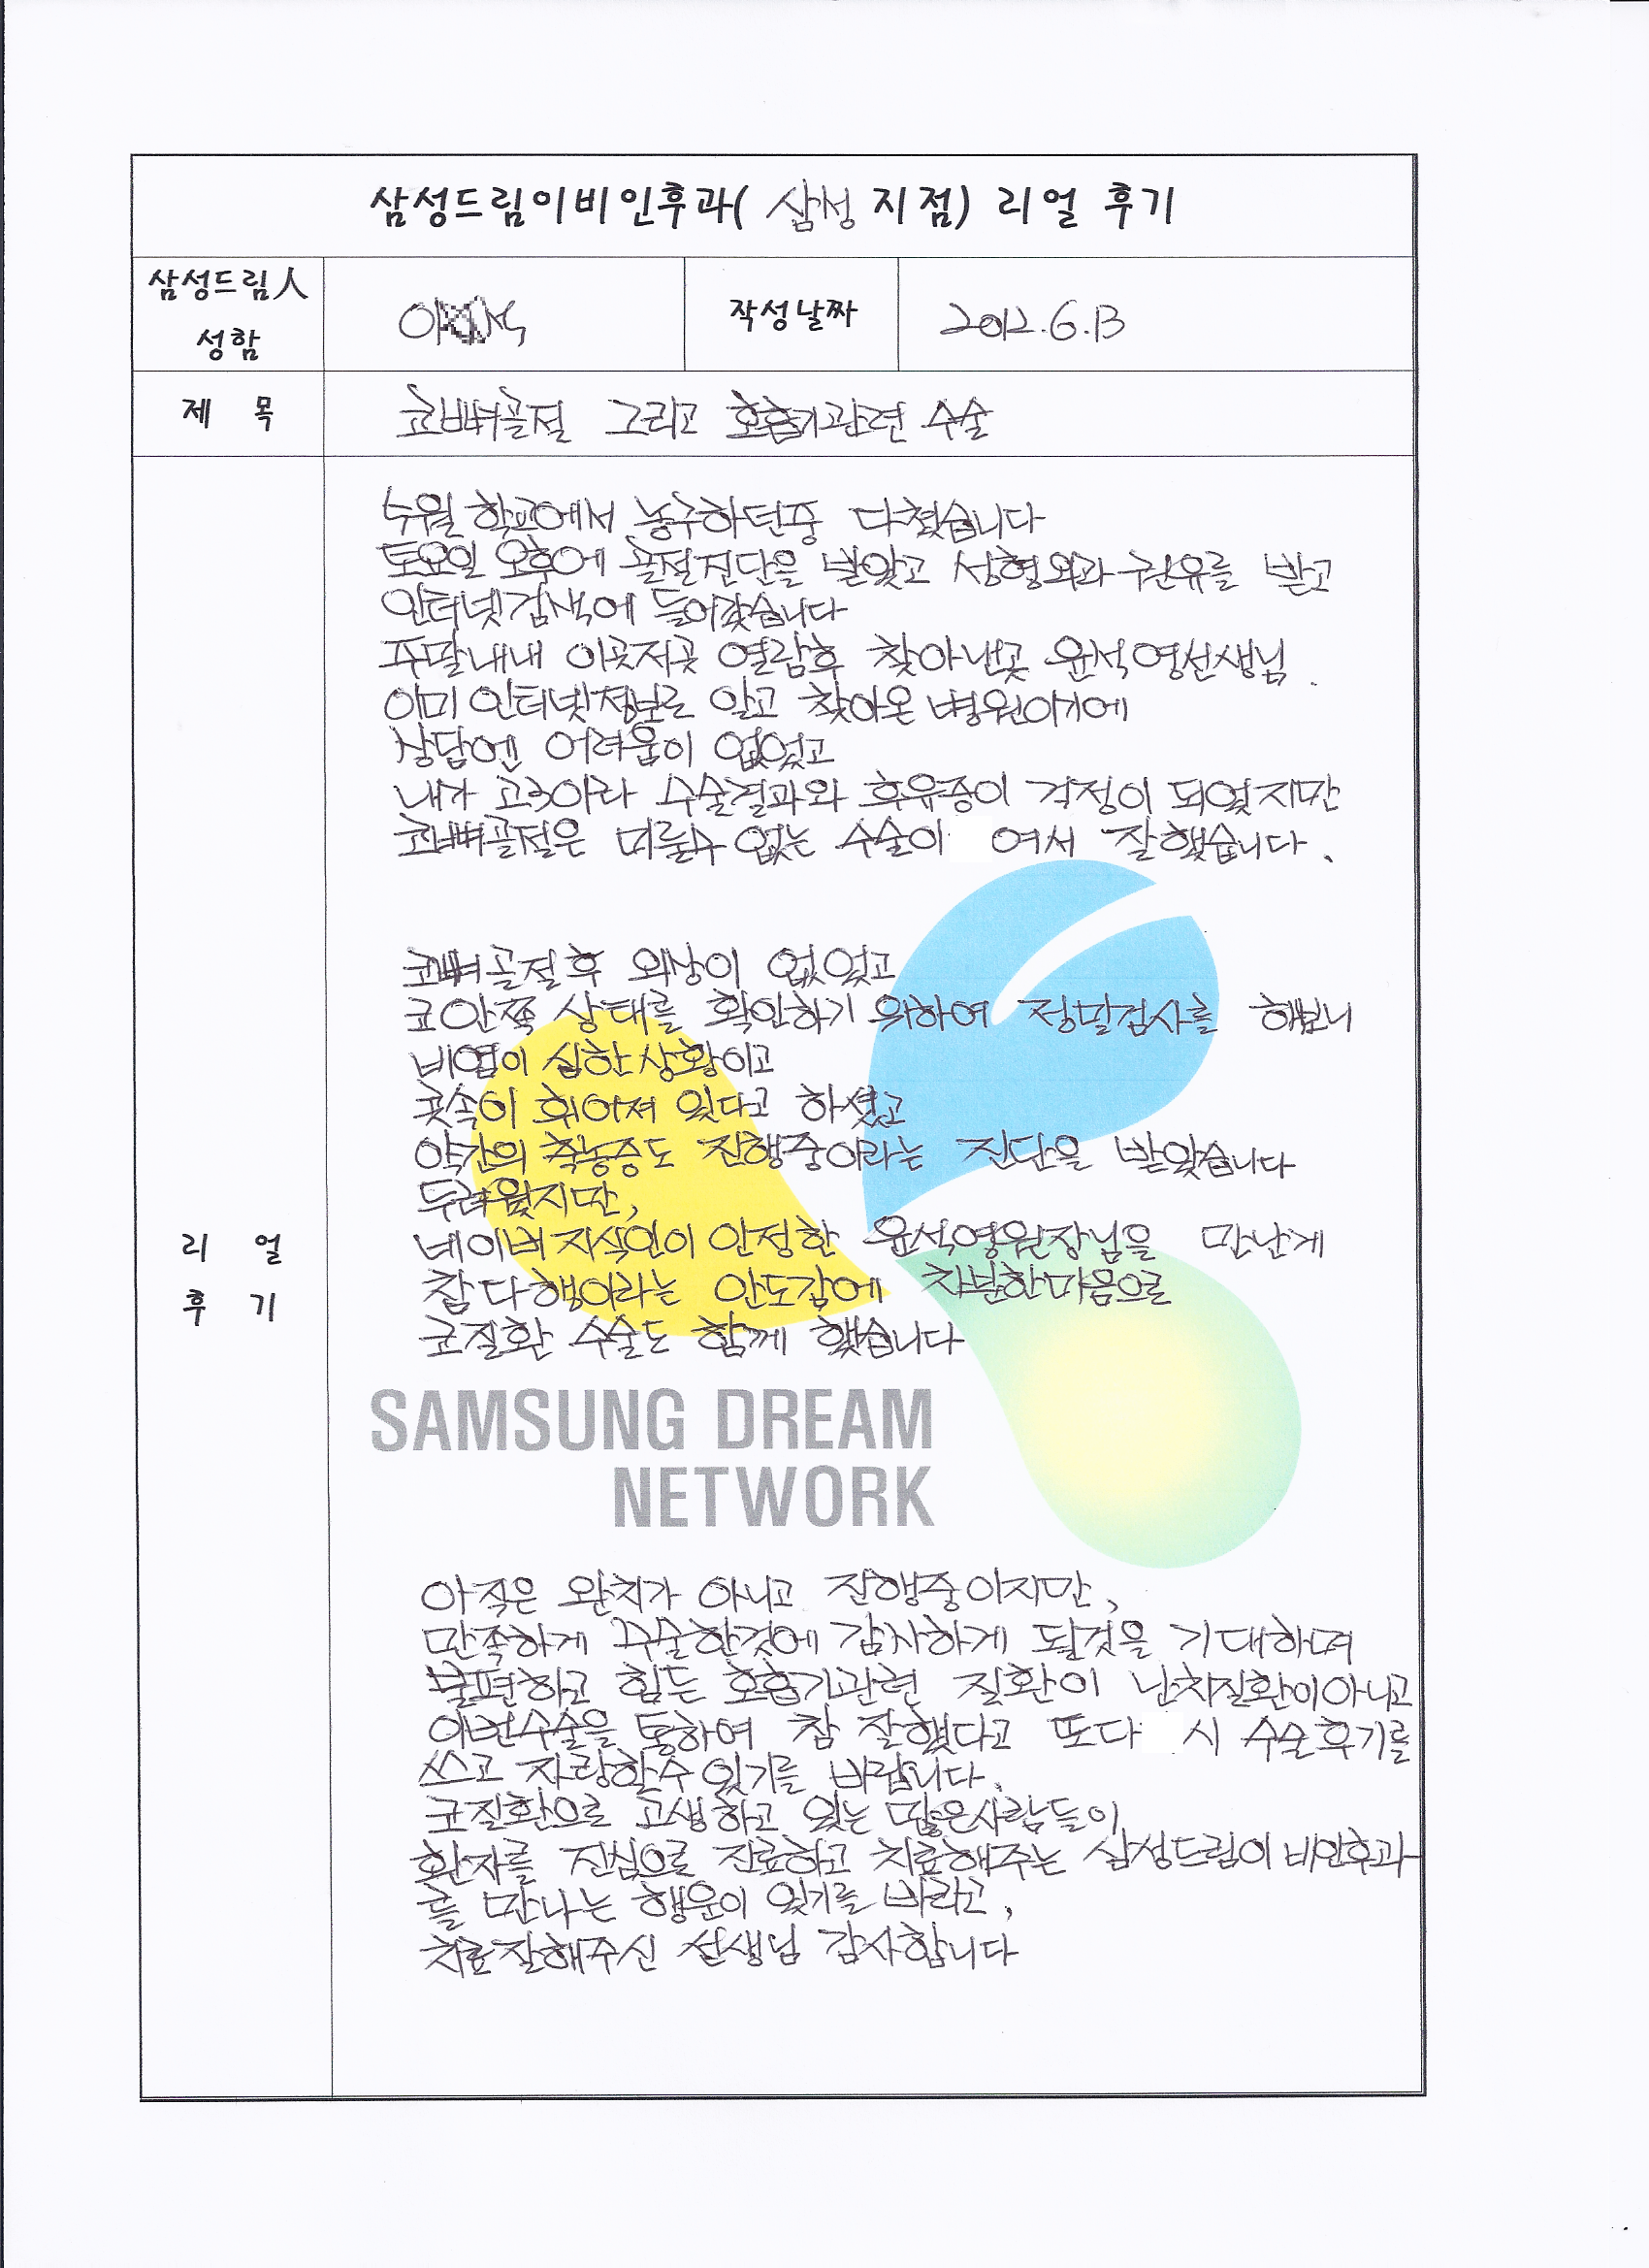 삼성드림이비인후과( 삼성 지점) 리얼 후기
삼성드림人
성함
작성날짜
2012.6.13
제 목
코뼈골절 그리고 호흡기관련 수술
학교에서 농구하던중 다쳤습니다
토요일 오후에 골절진단을 받았고 성형외과 권유를 받고
인터넷검색에 들어갔습니다
주말내내 이곳저곳 열람후 찾아낸곳 윤석영선생님.
이미 인터넷정보로 알고 찾아온 병원이기에
상담엔 어려움이 없었고
내가 고3이라 수술결과와 후유증이 걱정이 되었지만
코뼈골절은 미룰수 없는 수술이 여서 잘했습니다.
코뼈골절후 외상이 없었고
코안쪽 상태를 확인하기 위하여 정밀검사를 해보니
비염이 심한상황이고
콧속이 휘어져 있다고 하셨고
약간의 축농증도 진행중이라는 진단을 받았습니다
두려웠지만,
네이버 지식인이 인정한 윤석영원장님을 만난게
참 다행이라는 안도감에 차분한마음으로
코질환 수술도 함께 했습니다
SAMSUNG DREAM
NETWORK
리 얼
후 기
아직은 완치가 아니고 진행중이지만,
만족하게 수술한것에 감사하게 될것을 기대하며
불편하고 힘든 호흡기관련 질환이 난치질환이아니고
이번수술을 통하여 참 잘했다고 또다 시 수술후기를
쓰고 자랑할수 있기를 바랍니다.
코질환으로 고생하고 있는 많은사람들이
환자를 진심으로 진료하고 치료해주는 삼성드림이비인후과
를 만나는 행운이 있기를 바라고,
치료잘해주신 선생님 감사합니다